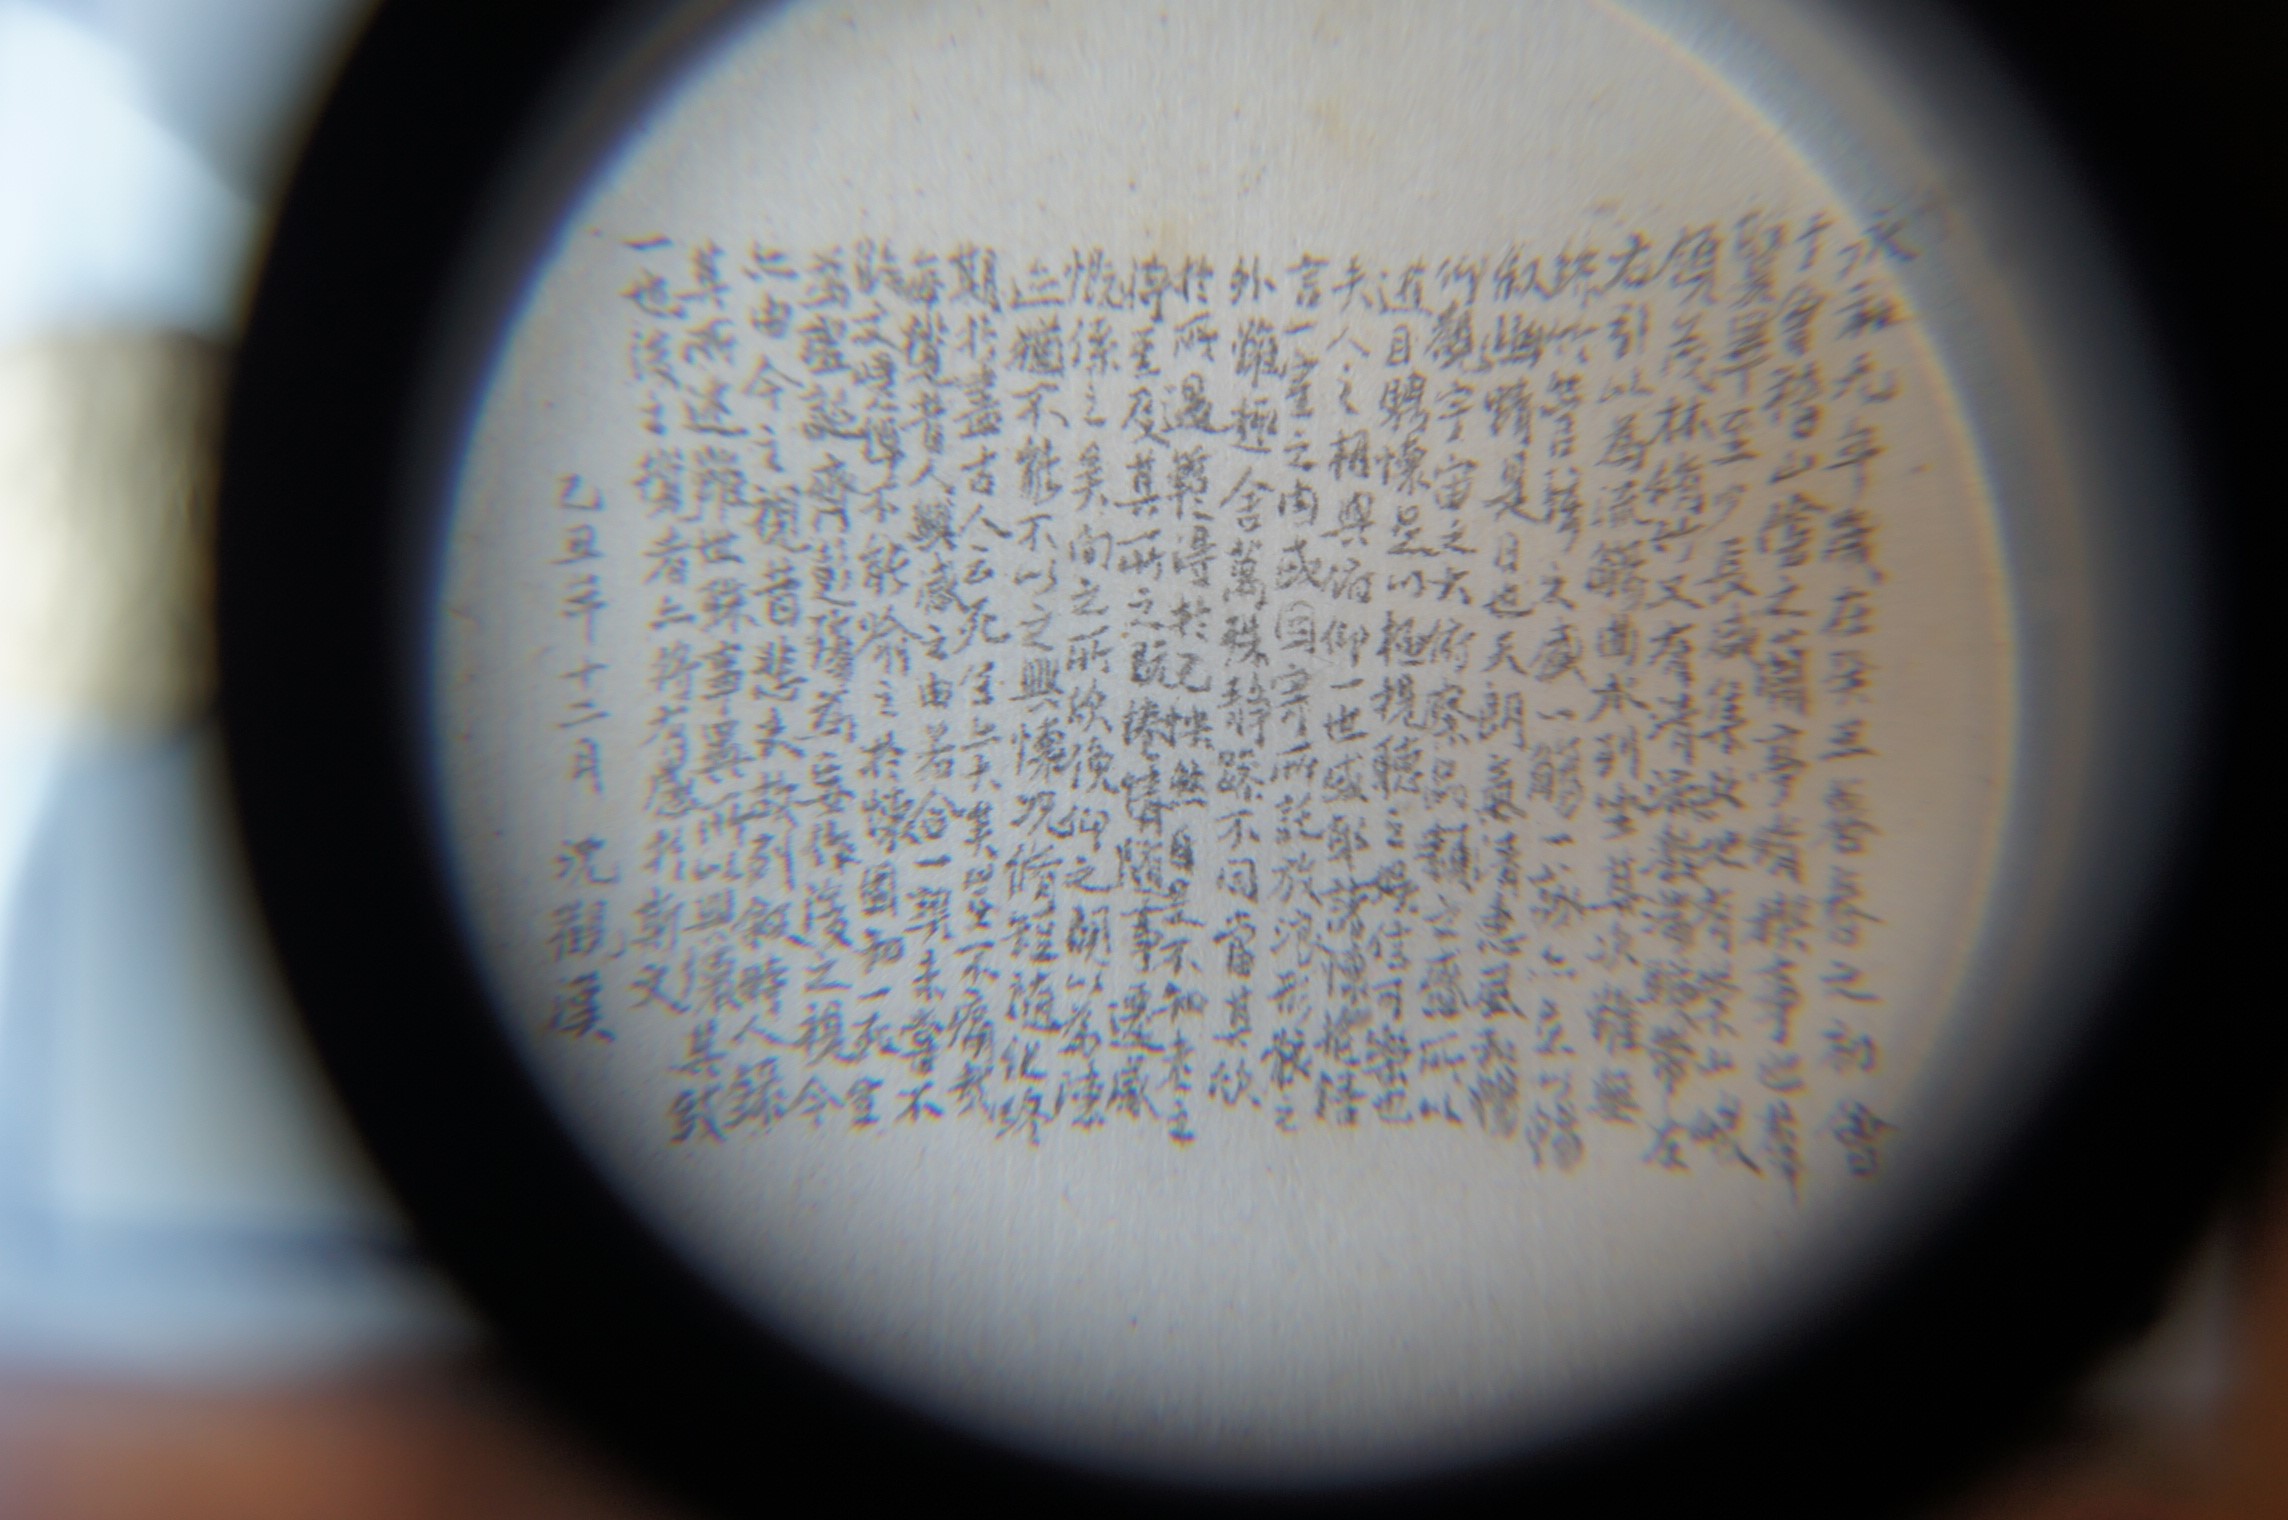 永和九年歲在癸丑暮春之初會
于會稽山陰之蘭亭脩禊事也羣
賢畢至少長咸集此地有崇山峻
領茂林脩竹又有清流激湍暎帶左
右引以為流觴曲水列坐其次雖無
絲竹管絃之盛一觴一詠亦足以暢
叙幽情是日也天朗氣清惠風和暢
仰觀宇宙之大俯察品類之盛所以
遊目騁懷足以極視聽之娛信可樂也
夫人之相與俯仰一世或取諸懷抱悟
言一室之內或因寄所託放浪形骸之
外雖趣舍萬殊靜躁不同當其欣
於所遇蹔得於己怏然自足不知老之
將至及其所之既惓情隨事遷感
慨係之矣向之所欣俛仰之間以為陳
迹猶不能不以之興懷況脩短隨化終
期於盡古人云死生亦大矣豈不痛哉
每攬昔人興感之由若合一契未嘗不
臨文嗟悼不能喻之於懷固知一死生
為虛誕齊彭殤為妄作後之視今
亦由今之視昔悲夫故列叙時人錄
其所述雖世殊事異所以興懷其致
一也後之攬者亦將有感於斯文
乙丑年十二月 沉觀漢